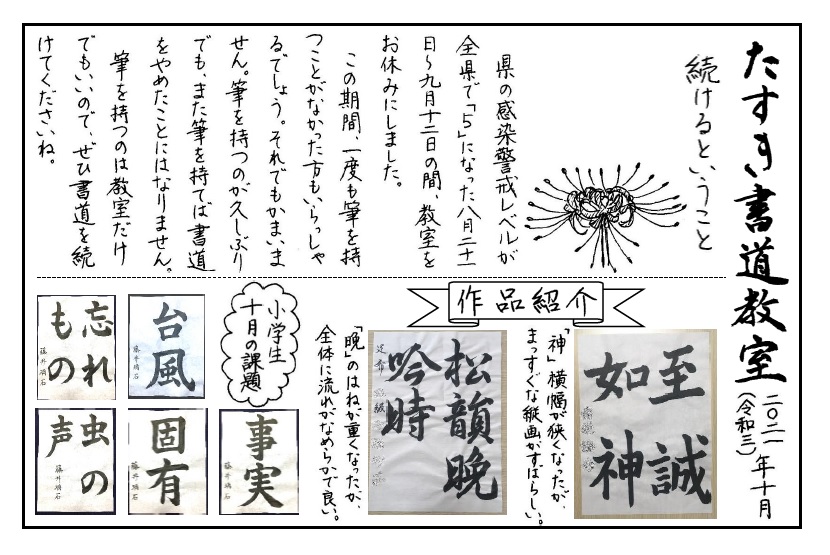 たすき書道教室
二〇二一年十月
(令和三)
続けるということ
県の感染警戒レベルが
全県で「5」になった八月二十
日〜九月十二日の間、教室を
お休みにしました。
この期間、一度も筆を持
つことがなかった方もいらっしゃ
るでしょう。それでもかまいま
せん。筆を持つのが久しぶり
でも、また筆を持てば書道
をやめたことにはなりません。
筆を持つのは教室だけ
でもいいので、ぜひ書道を続
けてくださいね。
作品紹介
至誠
如神
「神」横幅が狭くなったが、
まっすぐな縦画がすばらしい。
松韻晩
吟時
「晩」のはねが重くなったが、
全体に流れがなめらかで良い。
小学生
十月の課題
事実
台風
固有
忘れ
もの
虫の
声